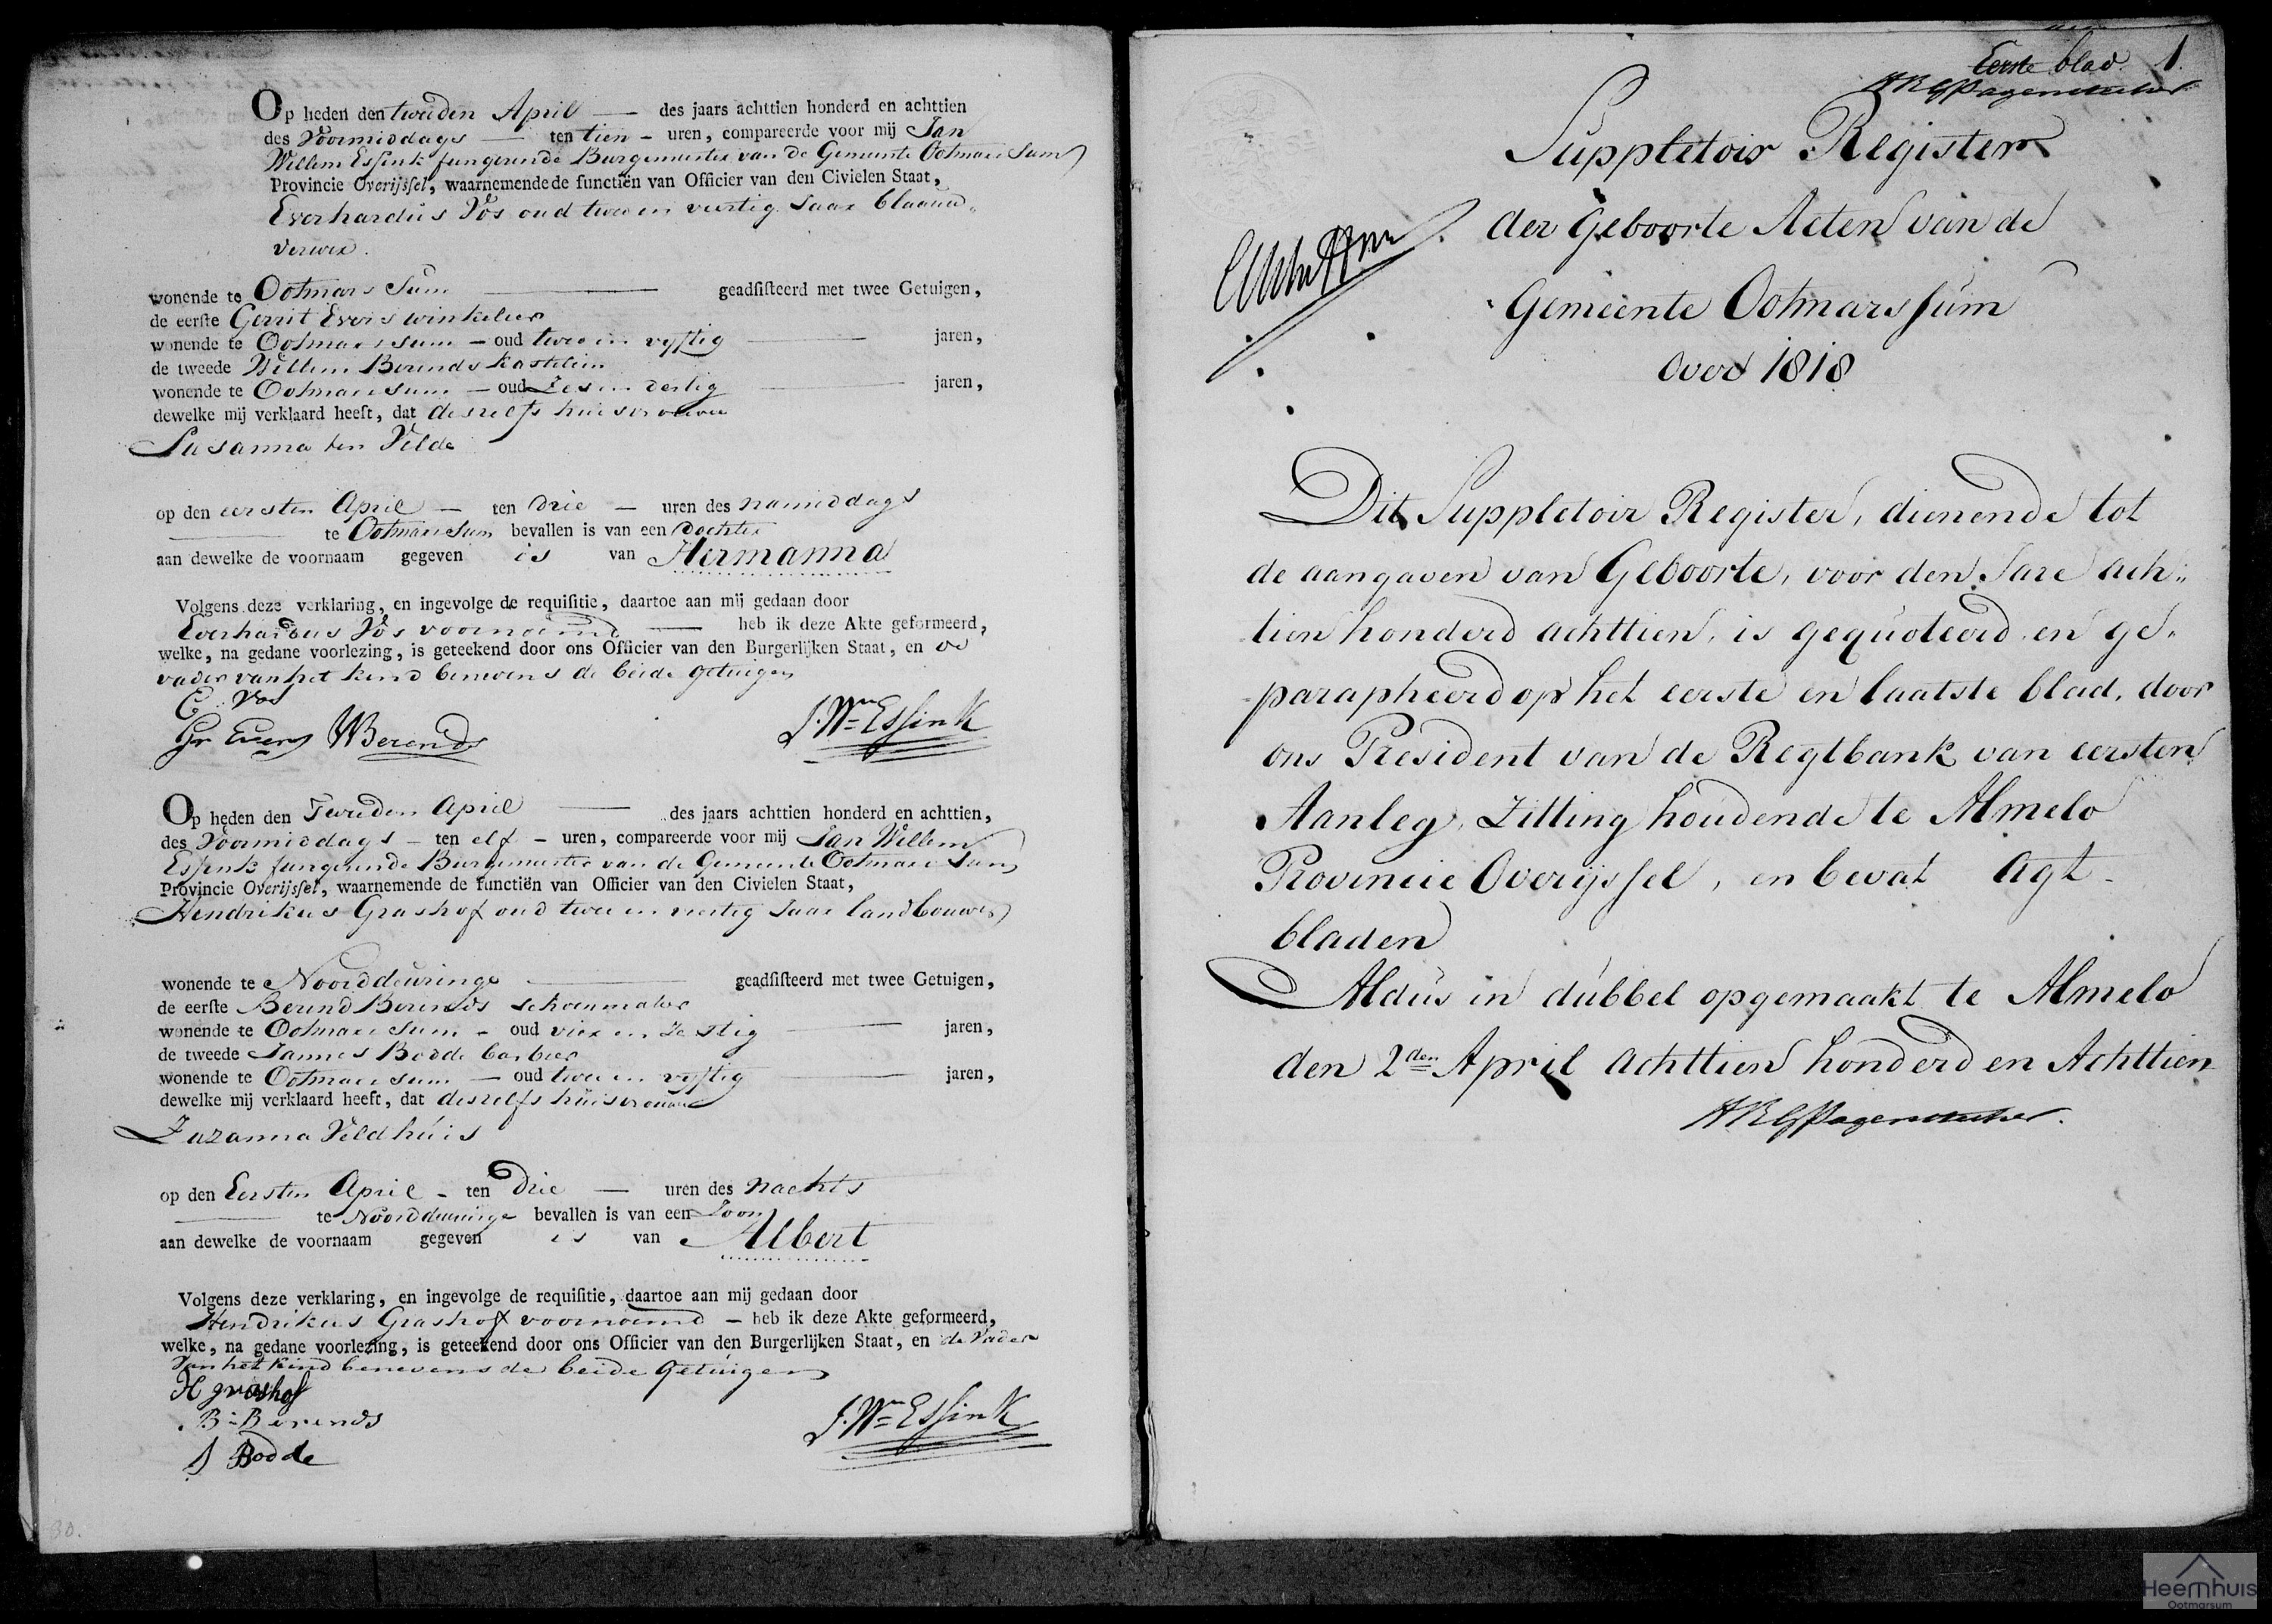 Op heden den tweeden April — des jaars achttien honderd en achttien
des Voormiddags — ten tien - uren, compareerde voor mij Jan
Willem Essink fungerende Burgemeester van de Gemeente Ootmarssum
Provincie Overijssel, waarnemende de functiën van Officier van den Civielen Staat,
Everhardus Vos oud twee en veertig Jaar blaauw„
verwer.
wonende te Ootmarssum — geadsisteerd met twee Getuigen,
de eerste Gerrit Evers winkelier
wonende te Ootmarssum - oud twee en vyftig — jaren,
de tweede Willem Berends kastelein
wonende te Ootmarssum — oud Zes en dertig — jaren,
dewelke mij verklaard heeft, dat deszelfs huisvrouw
Susanna ten Velde
op den eersten April — ten drie — uren des namiddags
— te Ootmarssum bevallen is van een Dochter
aan dewelke de voornaam gegeven is van Hermanna
Volgens deze verklaring, en ingevolge de requisitie, daartoe aan mij gedaan door
Everhardus Vos voornoemd — heb ik deze Akte geformeerd,
welke, na gedane voorlezing, is geteekend door ons Officier van den Burgerlijken Staat, en de
vader van het kind benevens de beide getuigen
E. Vos
Gr Evers WBerends J. Wm Essink
Op heden den Tweeden April — des jaars achttien honderd en achttien,
des Voormiddags - ten elf - uren, compareerde voor mij Jan Willem
Essink fungerende Burgemeester van de Gemeente Ootmarssum
Provincie Overijssel, waarnemende de functiën van Officier van den Civielen Staat,
Hendrikus Grashof oud twee en veertig Jaar landbouwer
wonende te Noorddeuringe — geadsisteerd met twee Getuigen,
de eerste Berend Berends schoenmaker
wonende te Ootmarssum - oud vier en Zestig — jaren,
de tweede Jannes Bodde barbier
wonende te Ootmarssum — oud twee en vyftig — jaren,
dewelke mij verklaard heeft, dat deszelfs huisvrouw
Zuzanna Veldhuis
op den Eersten April - ten Drie — uren des nachts
— te Noorddeuringe bevallen is van een Zoon
aan dewelke de voornaam gegeven is van Albert
Volgens deze verklaring, en ingevolge de requisitie, daartoe aan mij gedaan door
Hendrikus Grashof voornoemd - heb ik deze Akte geformeerd,
welke, na gedane voorlezing, is geteekend door ons Officier van den Burgerlijken Staat, en de Vader
van het kind benevens de beide Getuigen
H grashof
B: Berends
J Bodde J. Wm Essink
80.
Eerste blad. 1.
Suppletoir Register
der Geboorte Acten van de
Gemeente Ootmarssum
over 1818
Dit Suppletoir Register, dienende tot
de aangaven van Geboorte, voor den Jare ach„
tien honderd achttien, is gequoteerd en ge„
parapheerd op het eerste en laatste blad, door
ons President van de Regtbank van eersten
Aanleg, Zitting houdende te Almelo
Provincie Overijssel, en bevat Agt
bladen
Aldus in dubbel opgemaakt te Almelo
den 2den April achttien honderd en Achttien
Heemhuis
Ootmarsum